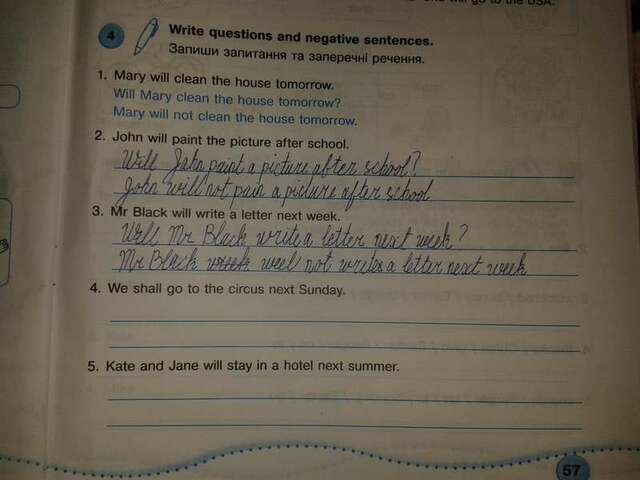 one will go to the USA.
4 Write questions and negative sentences.
Запиши запитання та заперечні речення.
1. Mary will clean the house tomorrow.
Will Mary clean the house tomorrow?
Mary will not clean the house tomorrow.
2. John will paint the picture after school.
Will John paint a picture after school?
John will not pain a picture after school
3. Mr Black will write a letter next week.
Will Mr Black write a letter next week?
Mr Black week weel not writes a letter next week
4. We shall go to the circus next Sunday.
5. Kate and Jane will stay in a hotel next summer.
57